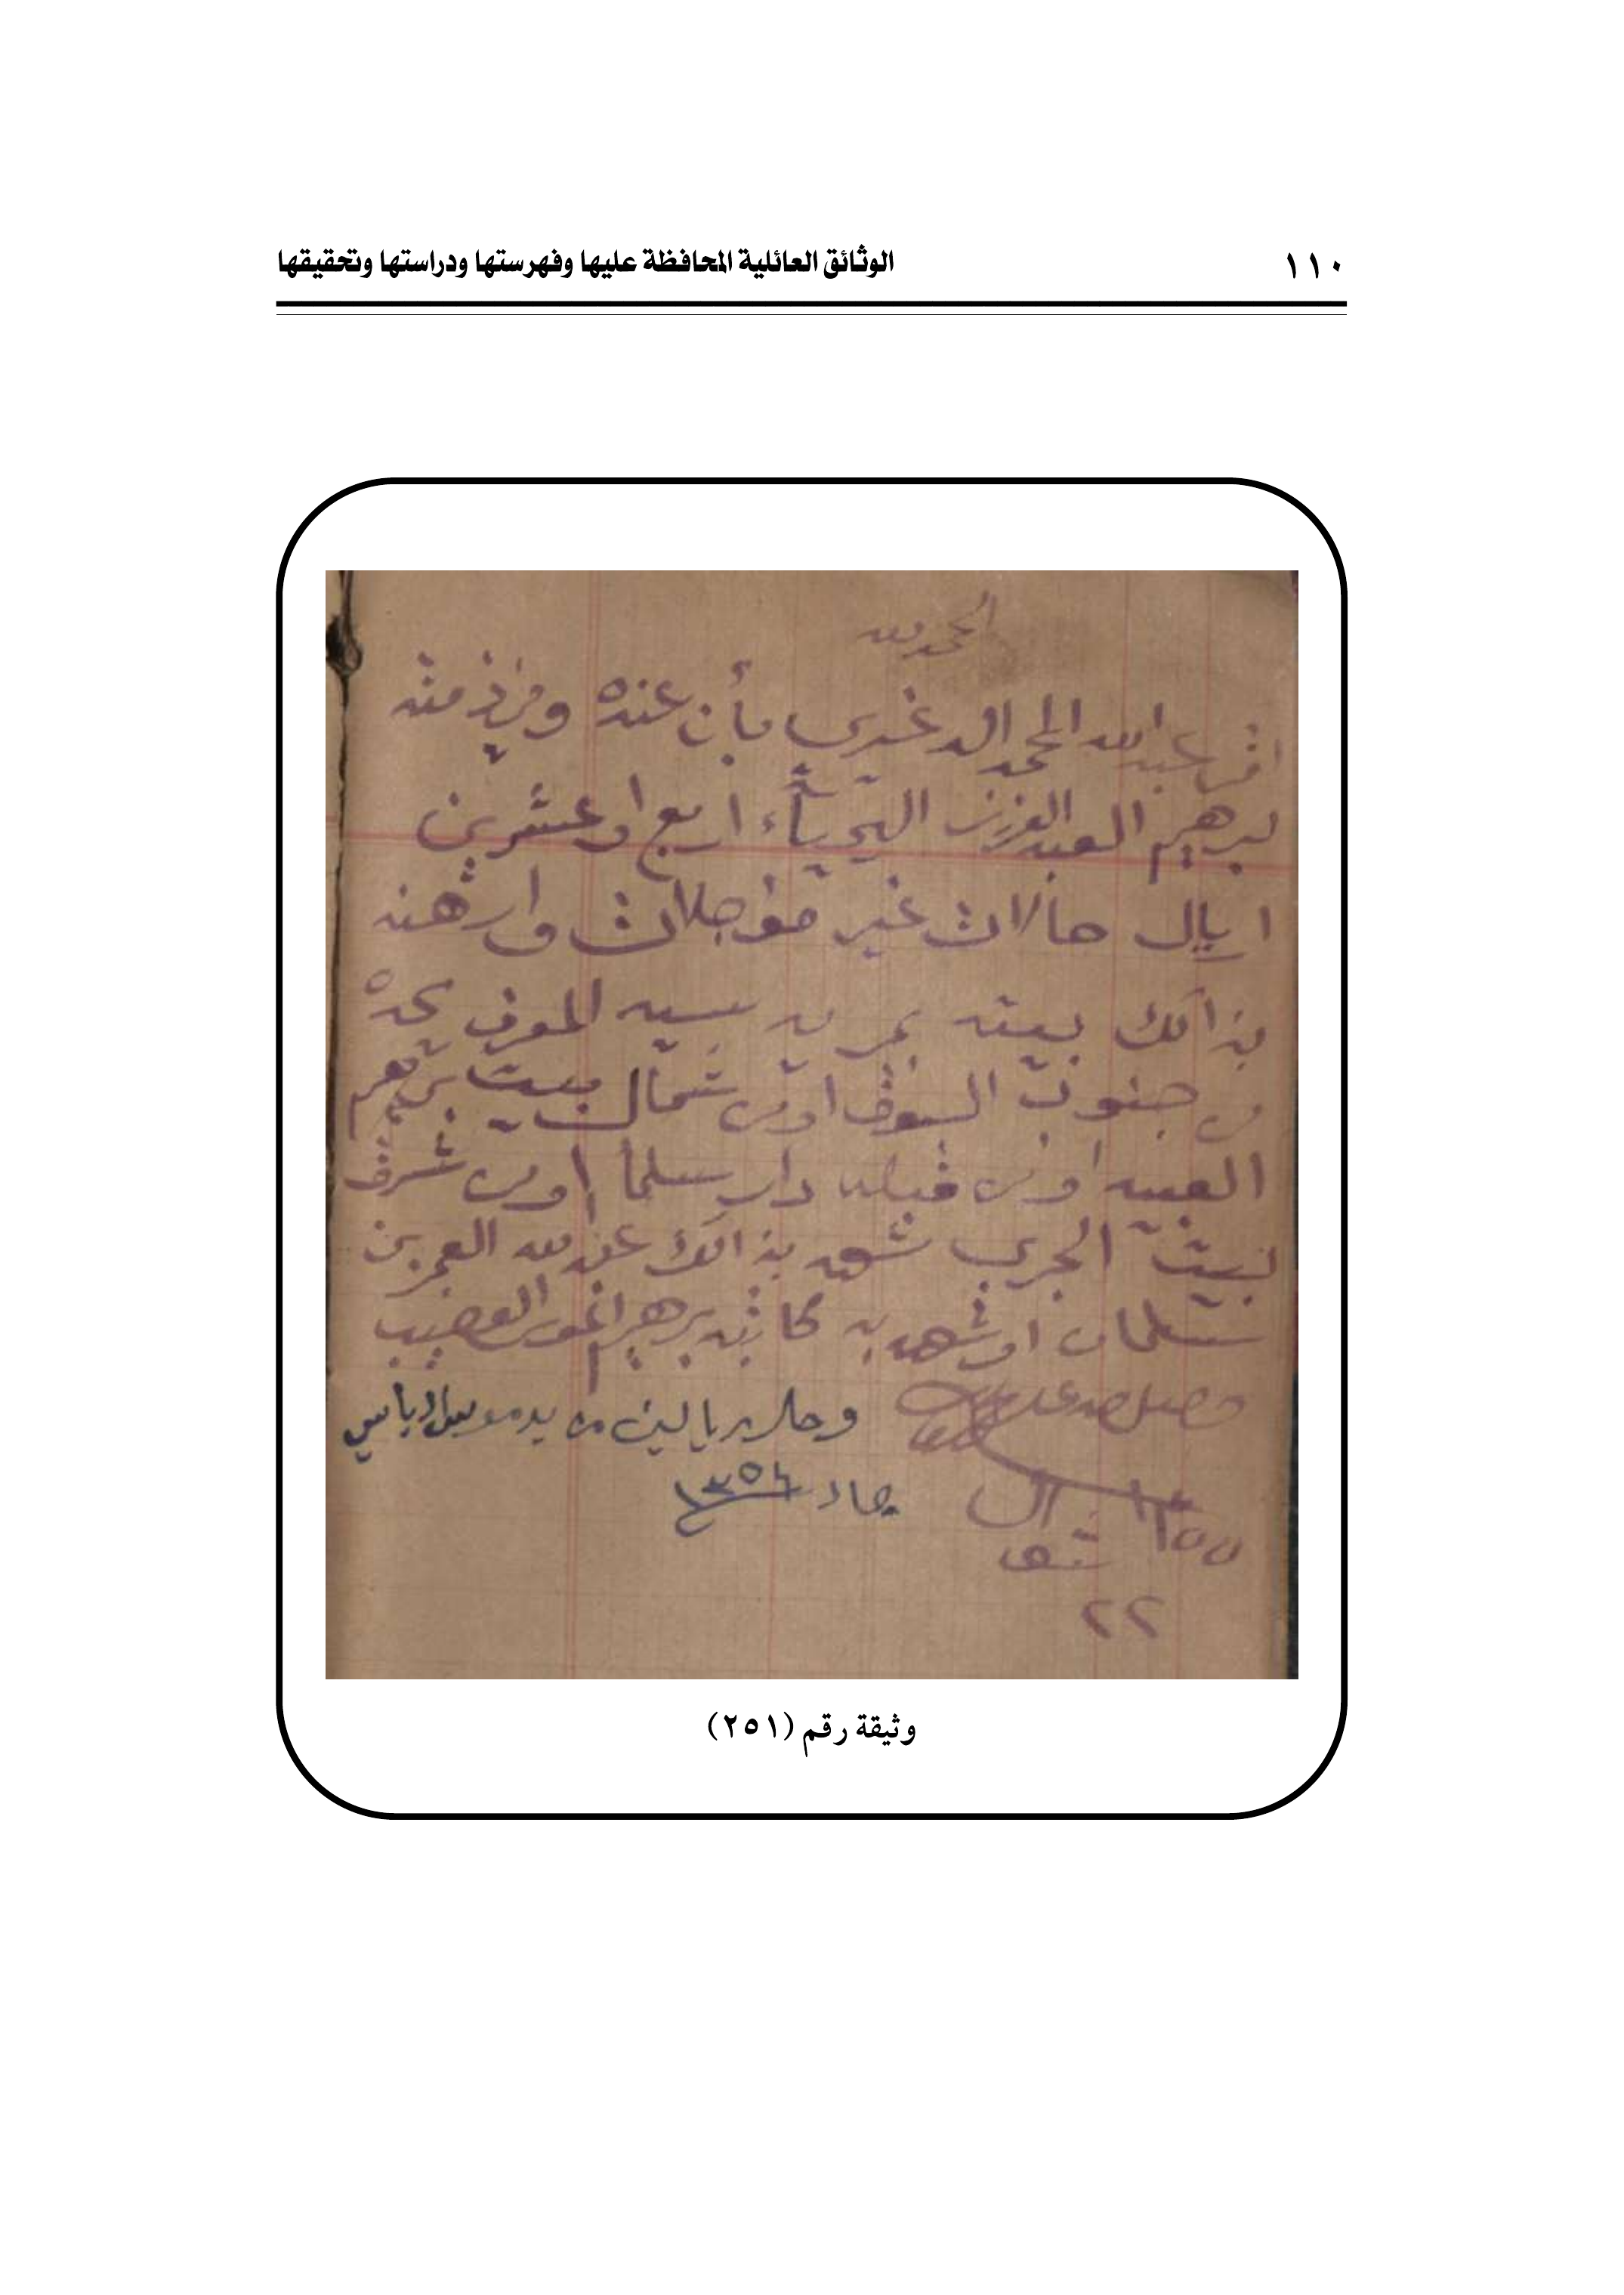 ١١٠
الوثائق العائلية المحافظة عليها وفهرستها ودراستها وتحقيقها
الحمد لله
اقر عبدالله المحمد الدغيري بأن عنده وفي ذمته
لبرهيم العبدالعزيز اليحيأ اربع اوعشرين
اريال حالات غير مؤجلات وارهنه
بذالك بيته المعروف يحده
من جنوب السوق اومن شمال بيت برهيم
العبيد اومن قبله دار سلما اومن شرق
بيت الجري شهد بذالك عبدالله العمر بن
سلمان اوشهد به كاتبه برهيم
١٣٥٥
٢٢
وحال ريالين من يد
جماد ١٣٥٦
وثيقة رقم (٢٥١)